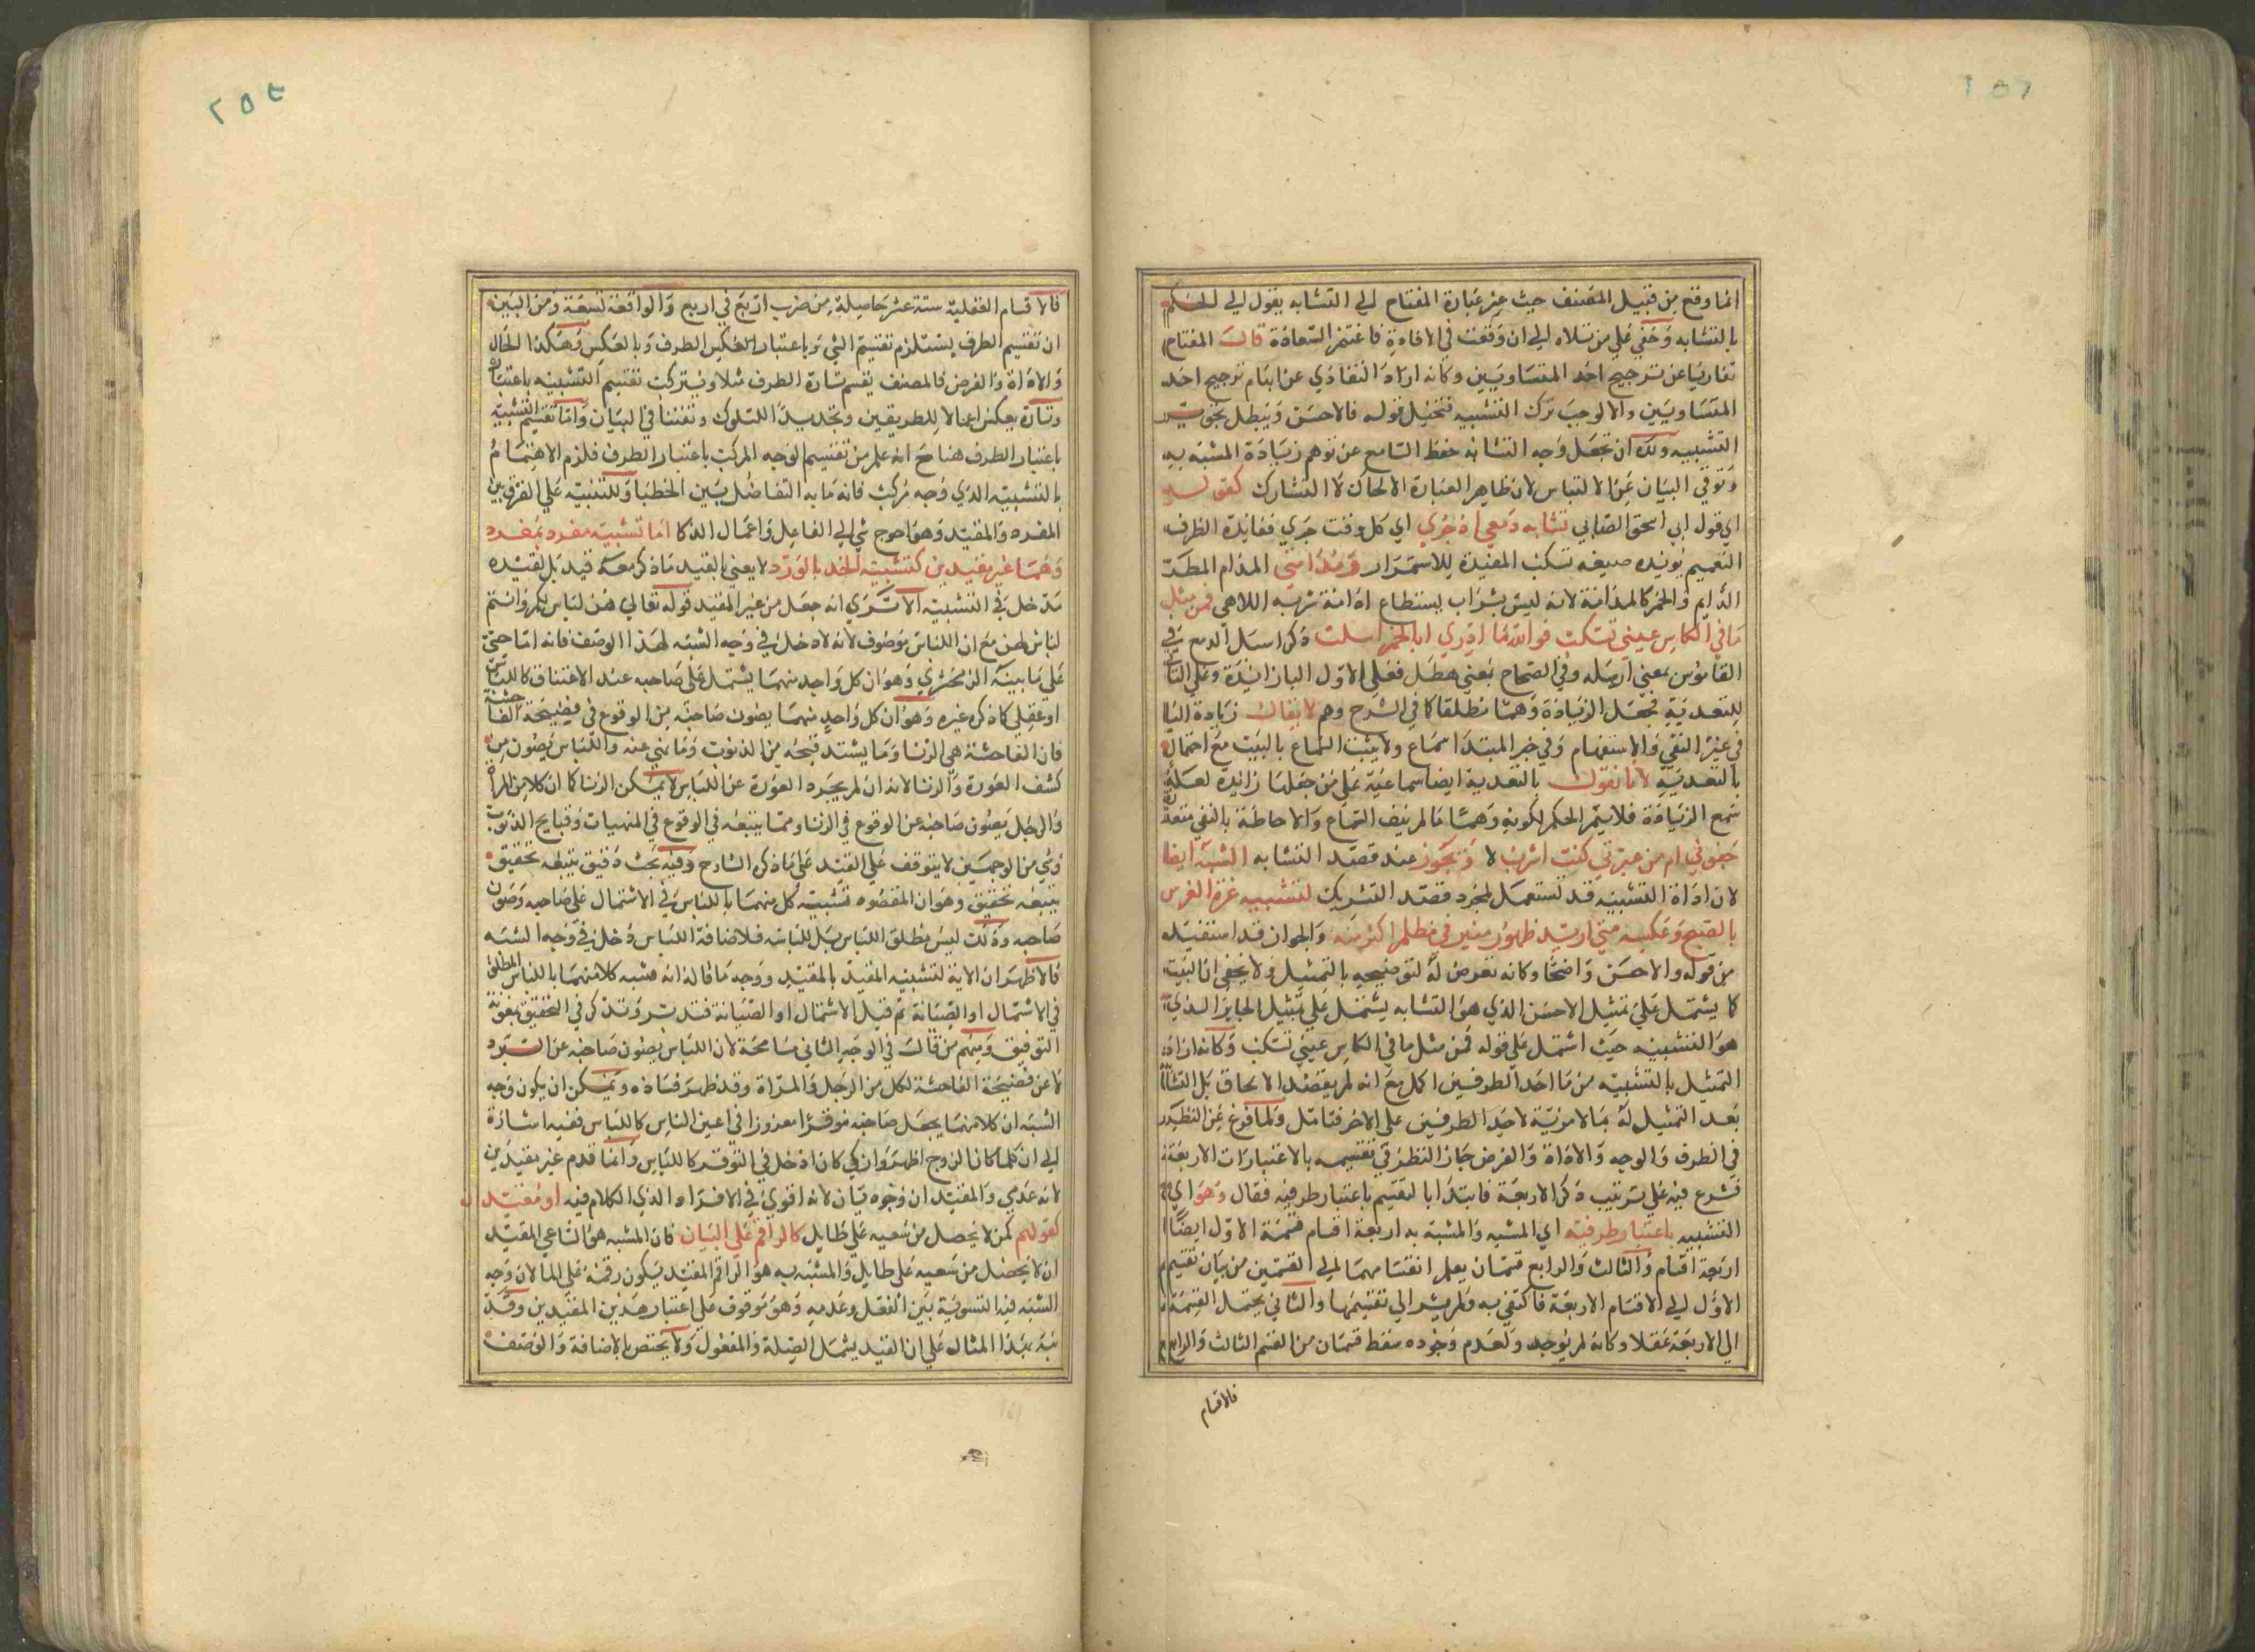 انما وقع من قبيل المصنف حيث عبر عبارة المفتاح الي التشابه بقول الي الحكم
بالتشابه وخفي علي من تلاه الي ان وقعت في الافادة فاغتنم السعادة قال المفتاح
تفاديا عن ترجيح احد المتساويين وكانه اراد التفادي عن ايهام ترجيح احد
المتساويين والا لوجب ترك التشبيه فتخيل قوله فالاحسن ويبطل
التشبيه ولك ان تجعل وجه التشابه حفظ السامع عن توهم زيادة المشبه به
وتوقي البيان عن الالتباس لان ظاهر العبارة الالحاق لا التشارك كقوله
اي قول ابي اسحق الصابي تشابه دمعي اذ جري اي كل وقت جري ففائدة الظرف
التعميم يؤيده صيغة تسكب المفيدة للاستمرار ومدامتي المدام المطر
الدايم والخمر كالمدامة لانه ليس بشراب يستطاع ادامة شربه اللاهي فمن مثل
ما في الكاس عيني تسكب فوالله ما ادري ابالخمر اسلت ذكر اسبل الدمع في
القاموس بمعني ارسله وفي الصحاح بمعني هطل فعلي الاول الباء زائدة وعلي الثاني
للتعدية فجعل الزيادة وهما مطلقا كما في الشرح وهم لا يقال زيادة البا
في غير النفي والاستفهام وفي خبر المبتدا سماع ولا يثبت السماع بالبيت مع احتمال
بالتعدية لانا نقول بالتعدية ايضا سماعية علي من جعلها زائدة لعله
سمع الزيادة فلا يتم الحكم لكونه وهما ما لم ينف السماع والاحاطة بالنفي متعذرة
جفوني ام من عبرتي كنت اشرب لا ويجوز عند قصد التشابه الشبه ايضا
لان اداة التشبيه قد تستعمل لمجرد قصد التشريك لتشبيه غرة الفرس
بالصبح وعكسه متي اريد ظهور منير في مظلم اكثر منه والجواز قد استفيد
من قوله والاحسن واضحا وكانه تعرض له لتوضيحه بالتمثيل ولا يخفي ان البيت
كما يشتمل علي تمثيل الاحسن الذي هو التشابه يشتمل علي تمثيل الجايز الذي
هو التشبيه حيث اشتمل علي قوله فمن مثل ما في الكاس عيني تسكب وكانه اراد
التمثيل بالتشبيه من ما احد الطرفين اكمل مع انه لم يقصد الالحاق بل التشابه
بعد التمثيل له بما لا مزية لاحد الطرفين علي الاخر فتامل ولما فرغ عن النظر
في الطرف والوجه والاداة والغرض حان النظر في تقسيمه بالاعتبارات الاربعة
فشرع فيه علي ترتيب ذكر الاربعة فابتدا بالتقسيم باعتبار طرفيه فقال وهو اي
التشبيه باعتبار طرفيه اي المشبه والمشبه به اربعة اقسام قسمة الاول ايضا
اربعة اقسام والثالث والرابع قسمان يعلم انقسامهما الي القسمين من بيان تقسيم
الاول الي الاقسام الاربعة فاكتفي به ولم يشر الي تقسيمها والثاني يحتمل القسمة
الي الاربعة عقلا وكانه لم يوجد ولعدم وجوده سقط قسمان من القسم الثالث والرابع
فالاقسام
٢٥٤
فالاقسام العقلية ستة عشر حاصلة من ضرب اربع في اربع والواقعة تسعة ومن البين
ان تقسيم الطرف يستلزم تقسيم الشي وباعتبار العكس الطرف وبالعكس وهكذا الحال
والاداة والغرض فالمصنف يقسم تارة الطرف مثلا ويترك تقسيم التشبيه باعتباره
وتارة يعكس اعمالا للطريقين وتجديدا للسلوك وتفننا في البيان واما تقسيم التشبيه
باعتبار الطرف هنا مع انه علم من تقسيم الوجه المركب باعتبار الطرف فلزم الاهتمام
بالتشبيه الذي وجهه مركب فانه ما به التفاضل بين الخطبا وللتنبيه علي الفرق بين
المفرد والمقيد وهو احوج شي الي الفاعل واعمال الذكا اما تشبيه مفرد بمفرد
وهما غير مقيدين كتشبيه الخد بالورد لا يعني بالقيد ما ذكر معه قيد بل لقيده
مدخل في التشبيه الا تري انه جعل من غير المقيد قوله تعالي هن لباس لكم وانتم
لباس لهن مع ان اللباس موصوف لانه لا دخل في وجه الشبه لهذا الوصف فانه اما حسي
علي ما بينه الزمخشري وهو ان كل واحد منهما يشتمل علي صاحبه عند الاعتناق كاللباس
او عقلي كما ذكره غيره وهو ان كل واحد منهما يصون صاحبه من الوقوع في فضيحة الفاحشة
فان الفاحشة هي الزنا وما يشتد قبحه من الذنوب وما نهي عنه واللباس يصون من
كشف العورة والزنا لانه ان لم يجرد العورة عن اللباس لا يمكن الزنا كما ان كلا من المراة
والرجل يصون صاحبه عن الوقوع في الزنا ومما يتبعه في الوقوع في المنهيات وقبايح الذنوب
وشي من الوجهين لا يتوقف علي القيد علي ما ذكر الشارح وفيه بحث دقيق يتبعه تحقيق
يتبعه تحقيق وهو ان المقصود تشبيه كل منهما باللباس في الاشتمال علي صاحبه وصون
صاحبه وذلك ليس مطلق اللباس بل لباسه فلاضافة اللباس دخل في وجه الشبه
فالاظهر ان الاية لتشبيه المقيد بالمقيد ووجه ما قاله انه شبه كلا منهما باللباس المطلق
في الاشتمال او الصيانة ثم قيد الاشتمال او الصيانة فتدبر وتذكر في التحقيق بعون
التوفيق ومنهم من قال في الوجه الثاني مسامحة لان اللباس يصون صاحبه عن البرد
لا عن فضيحة الفاحشة لكل من الرجل والمراة وقد ظهر فساده ويمكن ان يكون وجه
الشبه ان كلا منهما يجعل صاحبه موقرا معززا في اعين الناس كاللباس ففيه اشارة
الي ان كلما كان الزوج اظهر وازكي كان ادخل في التوقير كاللباس وانما قدم غير مقيدين
لانه عدمي والمقيد ان وجوديان لانه اقوي في الافراد الذي الكلام فيه او مقيدان
كقولهم لمن لا يحصل من سعيه علي طايل كالراقم علي الماء فان المشبه هو الساعي المقيد
ان لا يحصل من سعيه علي طايل والمشبه به هو الراقم المقيد بكون رقمه علي الماء لان وجه
الشبه فيه التسوية بين الفعل وعدمه وهو موقوف علي اعتبار هذين المقيدين وقد
نبه بهذا المثال علي ان القيد يشمل الصلة والمفعول ولا يختص بالاضافة والوصف